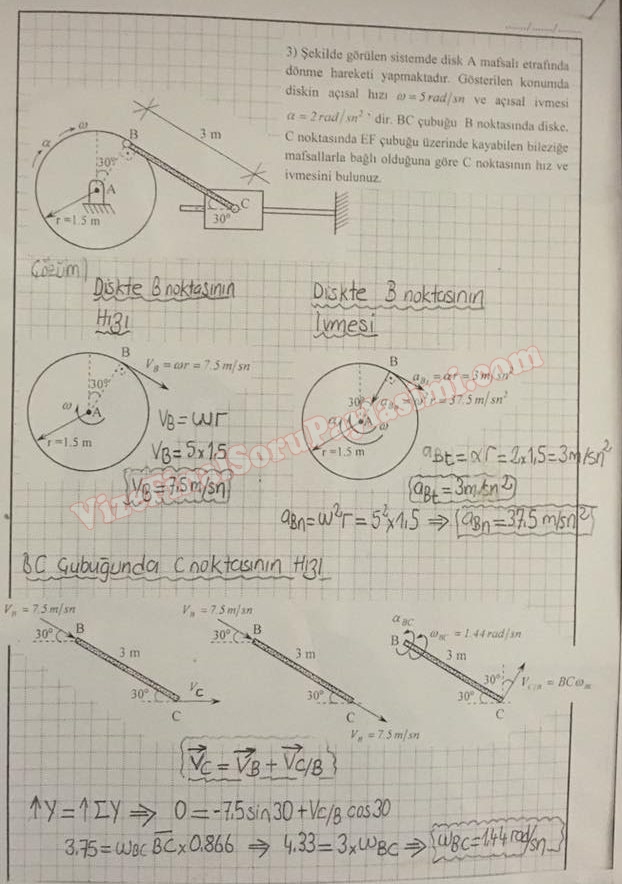 3) Şekilde görülen sistemde disk A mafsalı etrafında
dönme hareketi yapmaktadır. Gösterilen konumda
diskin açısal hızı ω = 5 rad/sn ve açısal ivmesi
α = 2 rad/sn² ' dir. BC çubuğu B noktasında diske,
C noktasında EF çubuğu üzerinde kayabilen bileziğe
mafsallarla bağlı olduğuna göre C noktasının hız ve
ivmesini bulunuz.
α ω B 3 m
30°
A
C
30°
r = 1.5 m
Çözüm)
Diskte B noktasının
Hızı
Diskte B noktasının
İvmesi
B
V_B = ωr = 7.5 m/sn
30°
ω A
r = 1.5 m
V_B = ωr
V_B = 5x1,5
V_B = 7,5 m/sn
B
a_Bt = αr = 3 m/sn²
30° = 37.5 m/sn²
α A ω
r = 1.5 m
a_Bt = αr = 2x1,5 = 3m/sn²
a_Bt = 3m/sn²
a_Bn = ω²r = 5²x1,5 ⇒ a_Bn = 37,5 m/sn²
BC Çubuğunda C noktasının Hızı
V_B = 7.5 m/sn
30° B
3 m
30° V_C
C
V_B = 7.5 m/sn
30° B
3 m
30°
C
V_B = 7.5 m/sn
α_BC
B ω_BC = 1.44 rad/sn
3 m
30°
30° V_C/B = BCω_BC
C
V_C = V_B + V_C/B
↑Y = ↑ΣY ⇒ 0 = -7,5 sin30 + V_C/B cos30
3,75 = ω_BC BC x 0,866 ⇒ 4,33 = 3 x ω_BC ⇒ ω_BC = 1,44 rad/sn
VizeFinalSoruPaylasimi.com